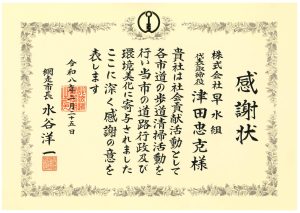 感謝状
株式会社早水組
代表取締役 津田忠克様
貴社は社会貢献活動として
各市道の歩道清掃活動を
行い当市の道路行政及び
環境美化に寄与されました
ここに深く感謝の意を
表します
令和八年二月二十五日
網走市長 水谷洋一